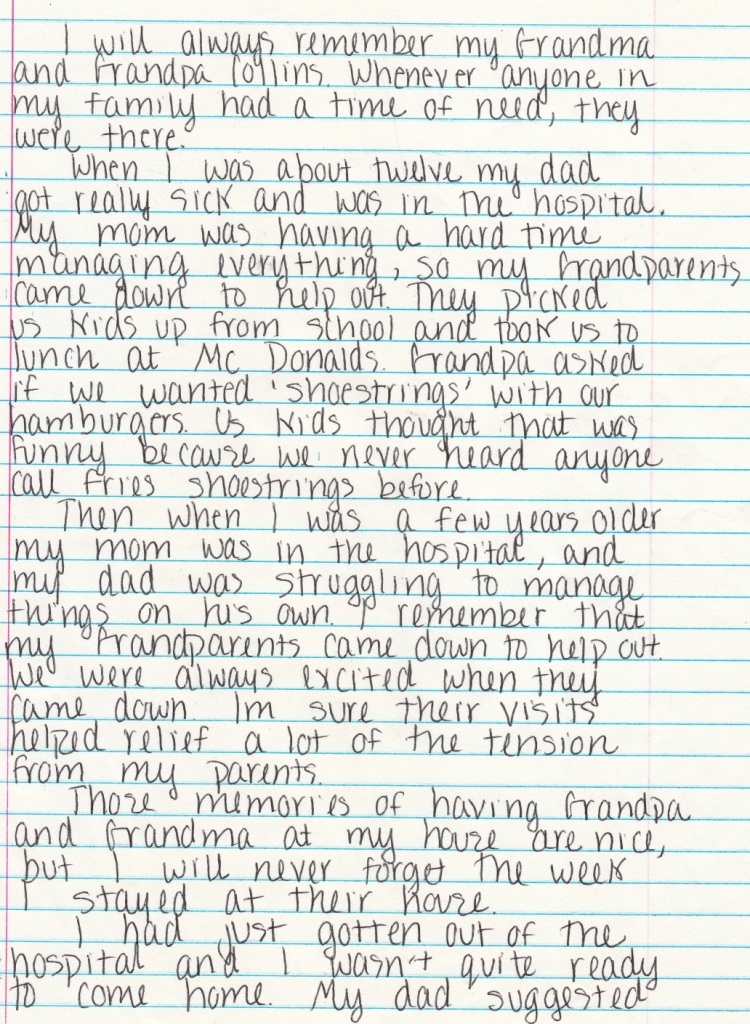 I will always remember my Grandma
and Grandpa Collins. Whenever anyone in
my family had a time of need, they
were there.
When I was about twelve my dad
got really sick and was in the hospital.
My mom was having a hard time
managing everything, so my Grandparents
came down to help out. They picked
us kids up from school and took us to
lunch at Mc Donalds. Grandpa asked
if we wanted 'shoestrings' with our
hamburgers. Us kids thought that was
funny because we never heard anyone
call fries shoestrings before.
Then when I was a few years older
my mom was in the hospital, and
my dad was struggling to manage
things on his own. I remember that
my Grandparents came down to help out.
We were always excited when they
came down. Im sure their visits
helped relief a lot of the tension
from my parents.
Those memories of having Grandpa
and Grandma at my house are nice,
but I will never forget the week
I stayed at their house.
I had just gotten out of the
hospital and I wasn't quite ready
to come home. My dad suggested